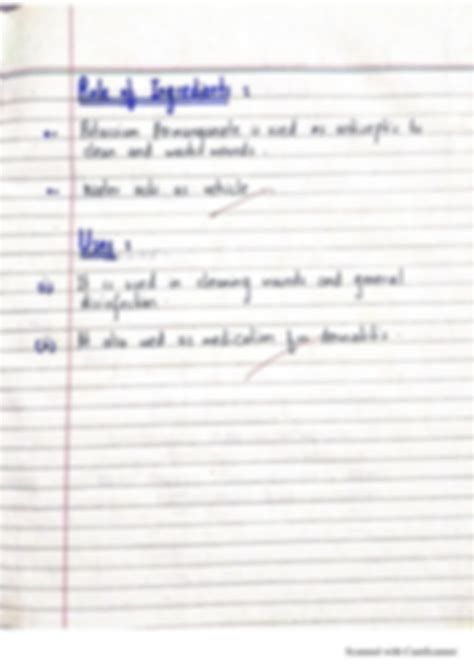 Role of Ingredients :
Potassium Permanganate is used as antiseptic to
clean and wounds.
Water acts as vehicle
Uses :
(i) It is used in cleaning wounds and general
disinfection
(ii) It also used as medication for dermatitis.
Scanned with CamScanner